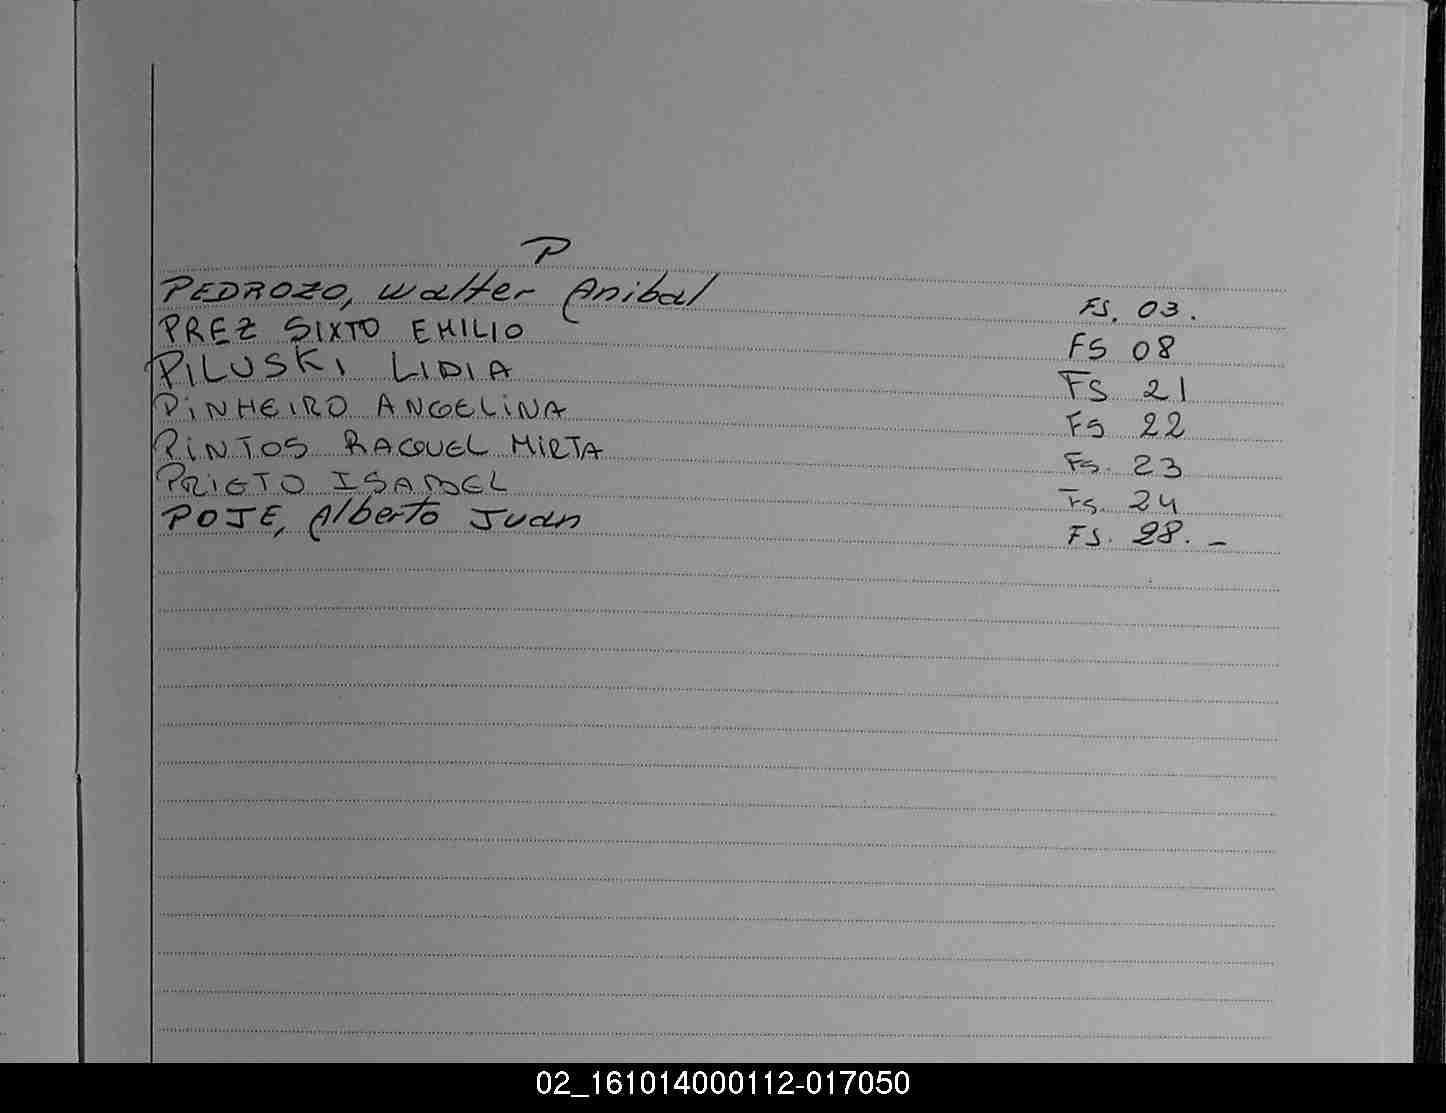 P
PEDROZO, Walter Anibal FS. 03.
PREZ SIXTO EMILIO FS 08
PILUSKI LIDIA FS 21
PINHEIRO ANGELINA FS 22
PINTOS RAQUEL MIRTA Fs. 23
PRIETO ISABEL Fs. 24
POJE, Alberto Juan FS. 28. -
02_161014000112-017050